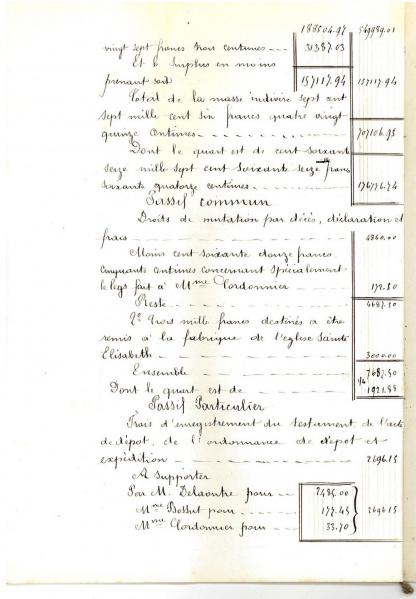 188504.97 549989.01
vingt sept francs trois centimes 31387.03
Et le surplus en moins
prenant soit 157117.94 157117.94
Total de la masse indivise sept cent
sept mille cent six francs quatre vingt
quinze centimes 707106.95
Dont le quart est de cent soixante
seize mille sept cent soixante seize francs
soixante quatorze centimes 176776.74
Passif commun
Droits de mutation par décès, déclaration et
frais 4860.00
Moins cent soixante douze francs
cinquante centimes concernant spécialement
le legs fait à Mme Cordonnier 172.50
Reste 4687.50
2º Trois mille francs destinés a être
remis à la fabrique de l'église Sainte
Elisabeth 3000.00
Ensemble 7687.50
Dont le quart est de 1/4 1921.88
Passif Particulier
Frais d'enregistrement du testament de l'acte
de dépot, de l'ordonnance de dépot et
expédition 2696.15
A supporter
Par M. Delaoutre pour 2485.00
Mme Bossut pour 177.45 2696.15
Mme Cordonnier pour 33.70